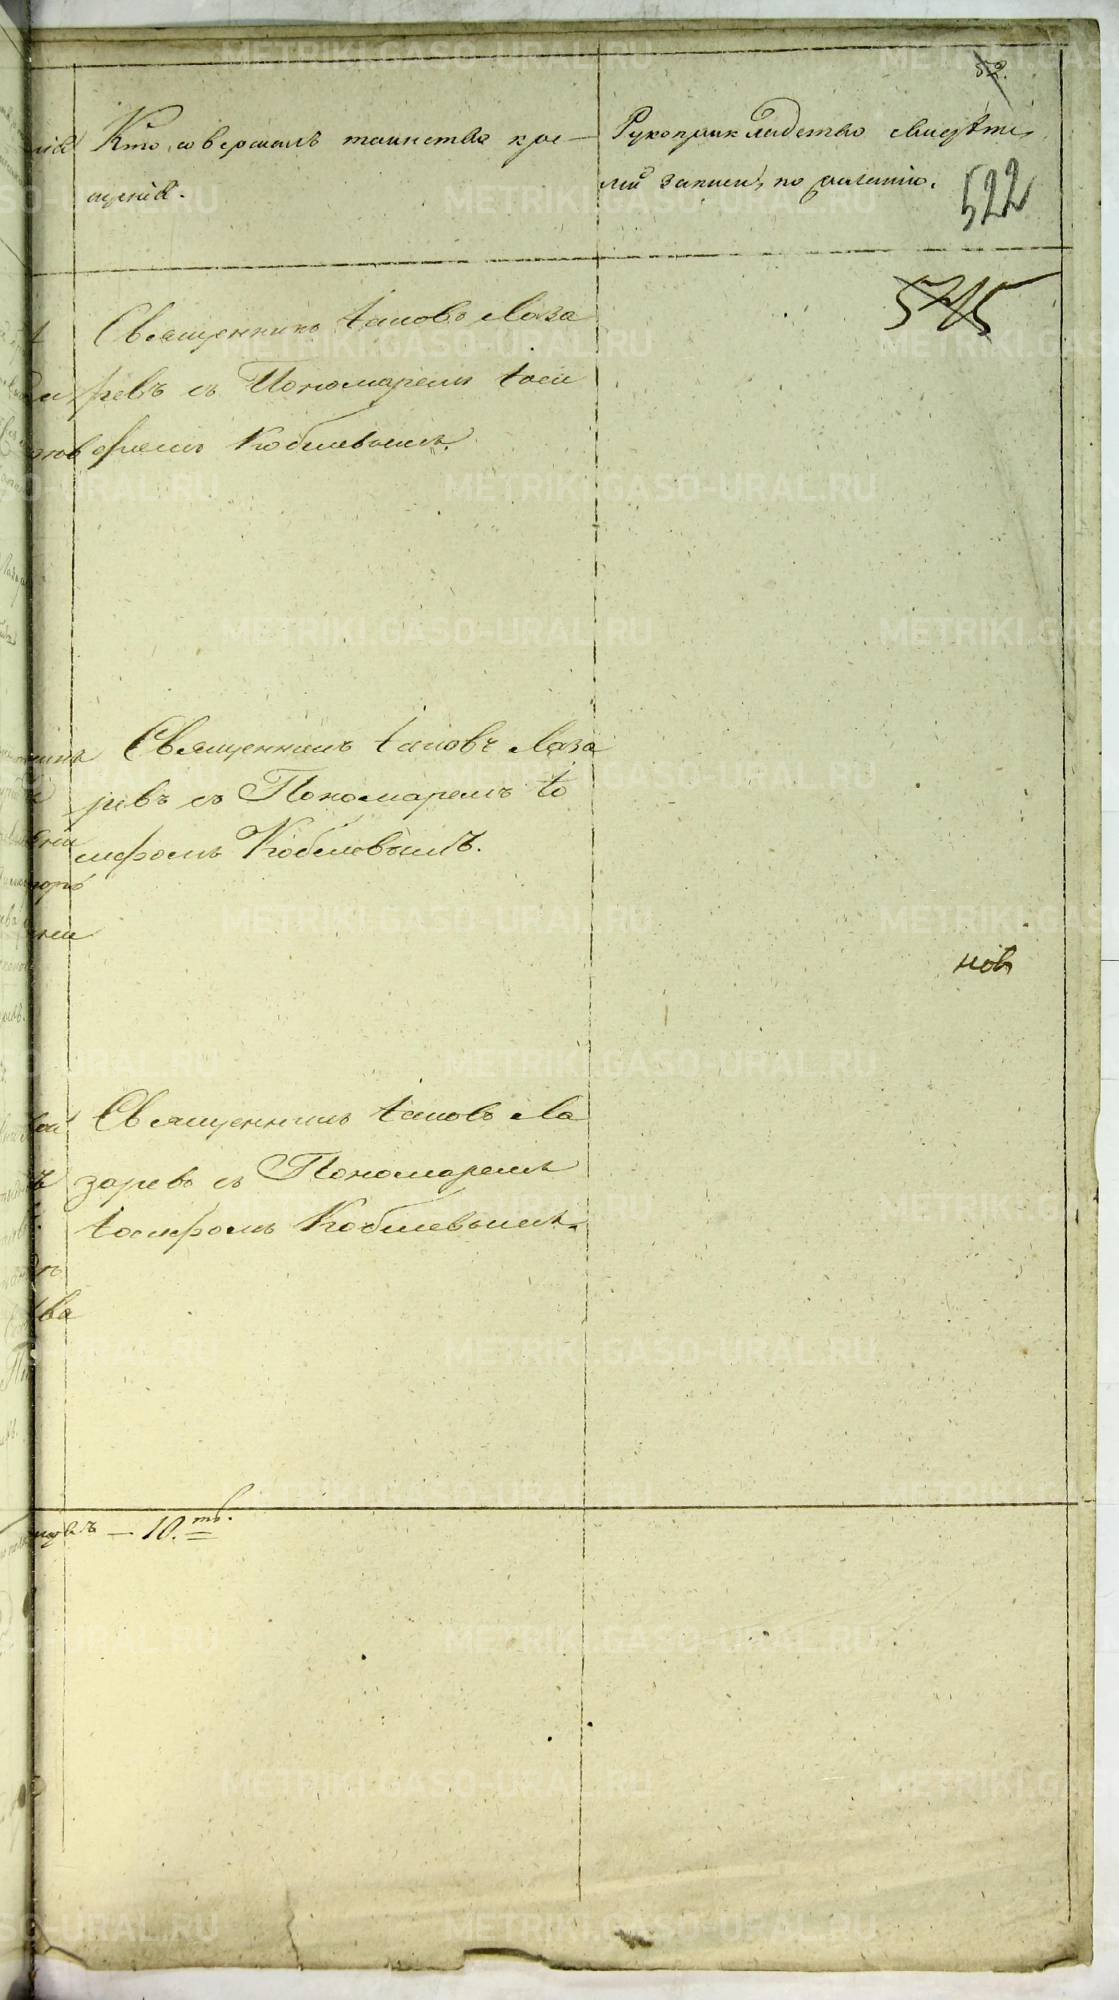 52.
Кто совершалъ таинство кре-
щенія.
Рукоприкладство свидѣте,
лей записи, по желанію.
522
545
Священникъ Іаковъ Лаза
ревъ съ Пономаремъ Іоси
фомъ Кобылевымъ.
Священникъ Іаковъ Лаза
ревъ съ Пономаремъ Іо
сифомъ Кобылевымъ.
нов
Священникъ Іаковъ Ла
заревъ съ Пономаремъ
Іосифомъ Кобылевымъ.
— 10.ть.
METRIKI.GASO-URAL.RU